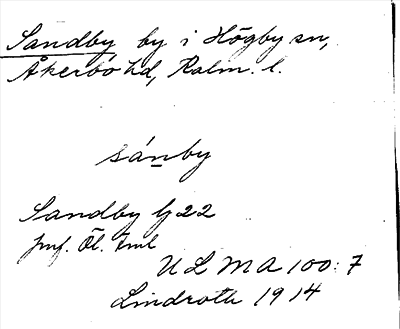 Sandby by i Högby sn,
Åkerbo hd, Kalm. l.
sánby
Sandby lj 22
jmf. Öl. Fml
ULMA 100:7
Lindroth 1914